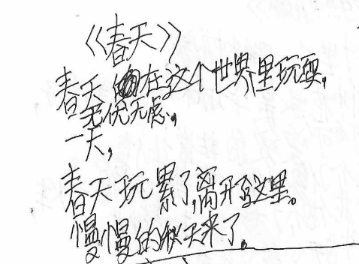 《春天》
春天在这个世界里玩耍,
无忧无虑。
一天,
春天玩累了,离开这里。
慢慢的秋天来了。